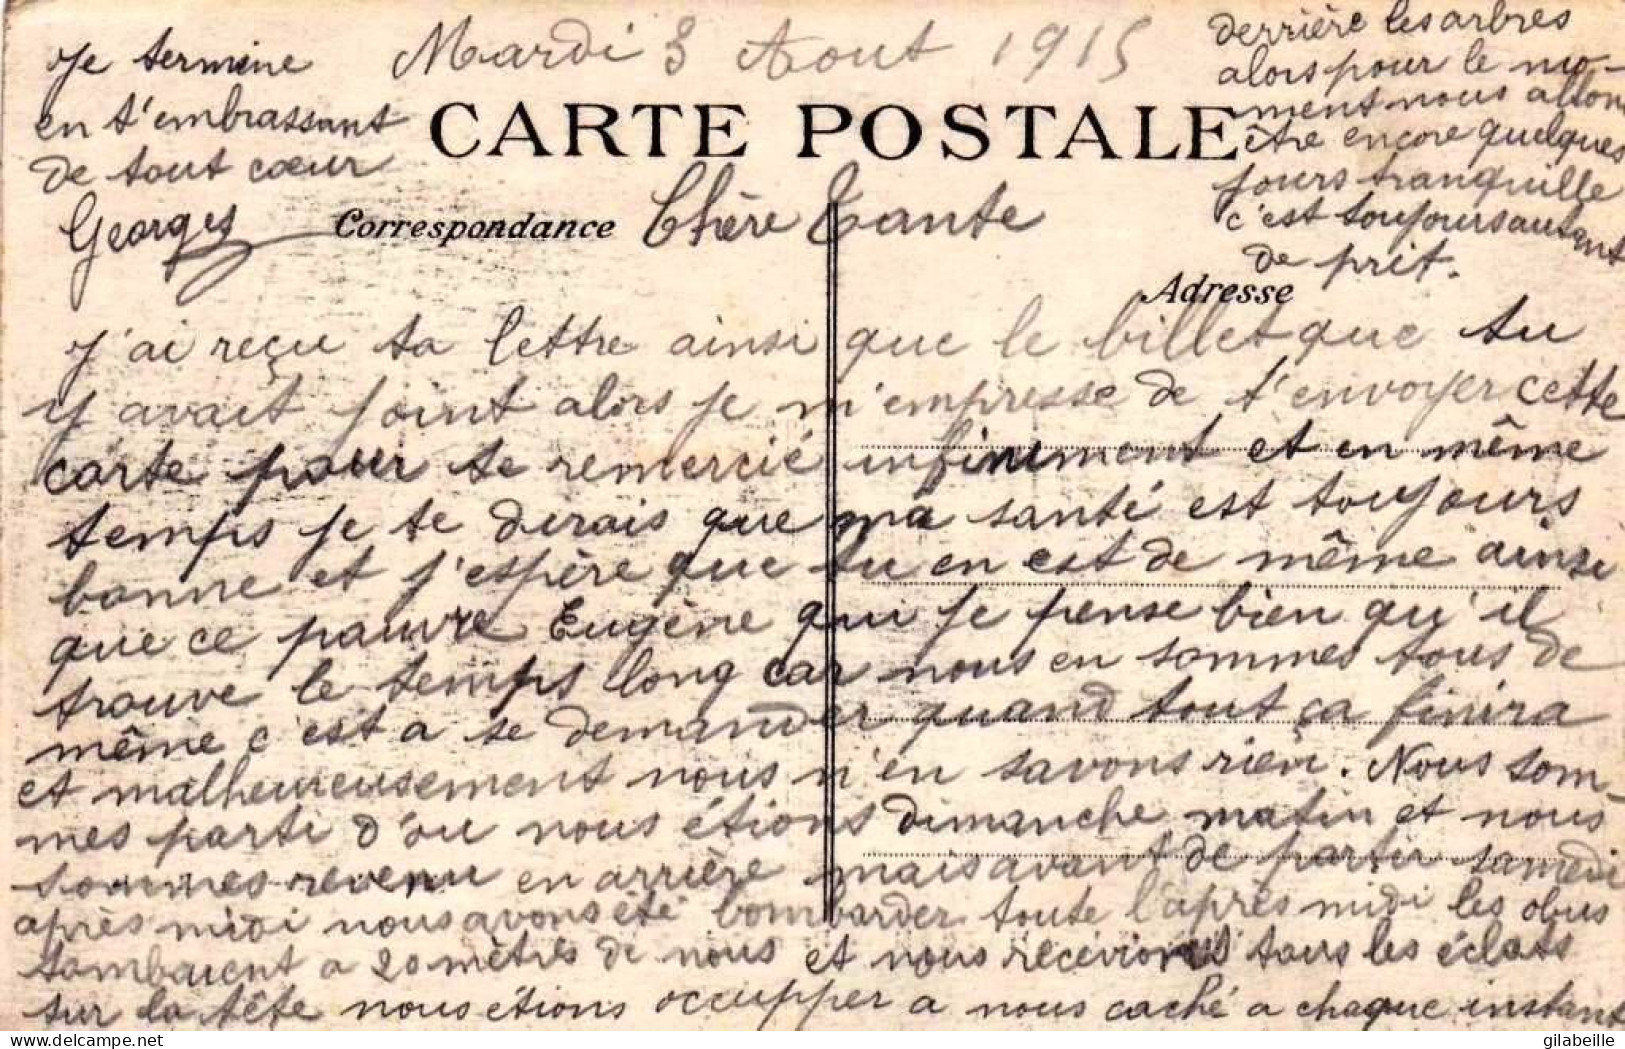 Mardi 3 Aout 1915
CARTE POSTALE
Correspondance
Chère Tante
Adresse
J'ai reçu ta lettre ainsi que le billet que tu
y avait joint alors je m'empresse de t'envoyer cette
carte pour te remercié infiniment et en même
temps je te dirais que ma santé est toujours
bonne et j'espère que tu en est de même ainsi
que ce pauvre Eugène qui je pense bien qu'il
trouve le temps long car nous en sommes tous de
même c'est a se demander quand tout ça finira
et malheureusement nous n'en savons rien. Nous som-
mes parti d'ou nous étions dimanche matin et nous
sommes revenu en arrière mais avant de partir samedi
après midi nous avons été bombarder toute l'après midi les obus
tombaient a 20 mètres de nous et nous recevions tous les éclats
sur la tête nous étions occupper a nous caché a chaque instant
derrière les arbres
alors pour le mo-
ment nous allons
être encore quelques
jours tranquille
c'est toujours autant
de prit.
Je termine
en t'embrassant
de tout cœur
Georges
delcampe.net
gilabeille